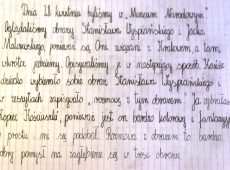 Dnia 28 kwietnia byliśmy w „Muzeum Narodowym"
Oglądaliśmy obrazy Stanisława Wyspiańskiego i Jacka
Malczewskiego, ponieważ są Oni związani z Krakowem, a tam
wkrótce jedziemy. Opisywaliśmy je w następujący sposób. Każde
dziecko wybierało sobie obraz Stanisława Wyspiańskiego i
w zeszytach zapisywało „rozmowę z tym obrazem" Ja wybrałam
Kopiec Kościuszki, ponieważ jest on bardzo kolorowy i
po prostu mi się podobał. Rozmowa z obrazem to bardzo
dobry pomysł na zagłębienie się w treści obrazu.